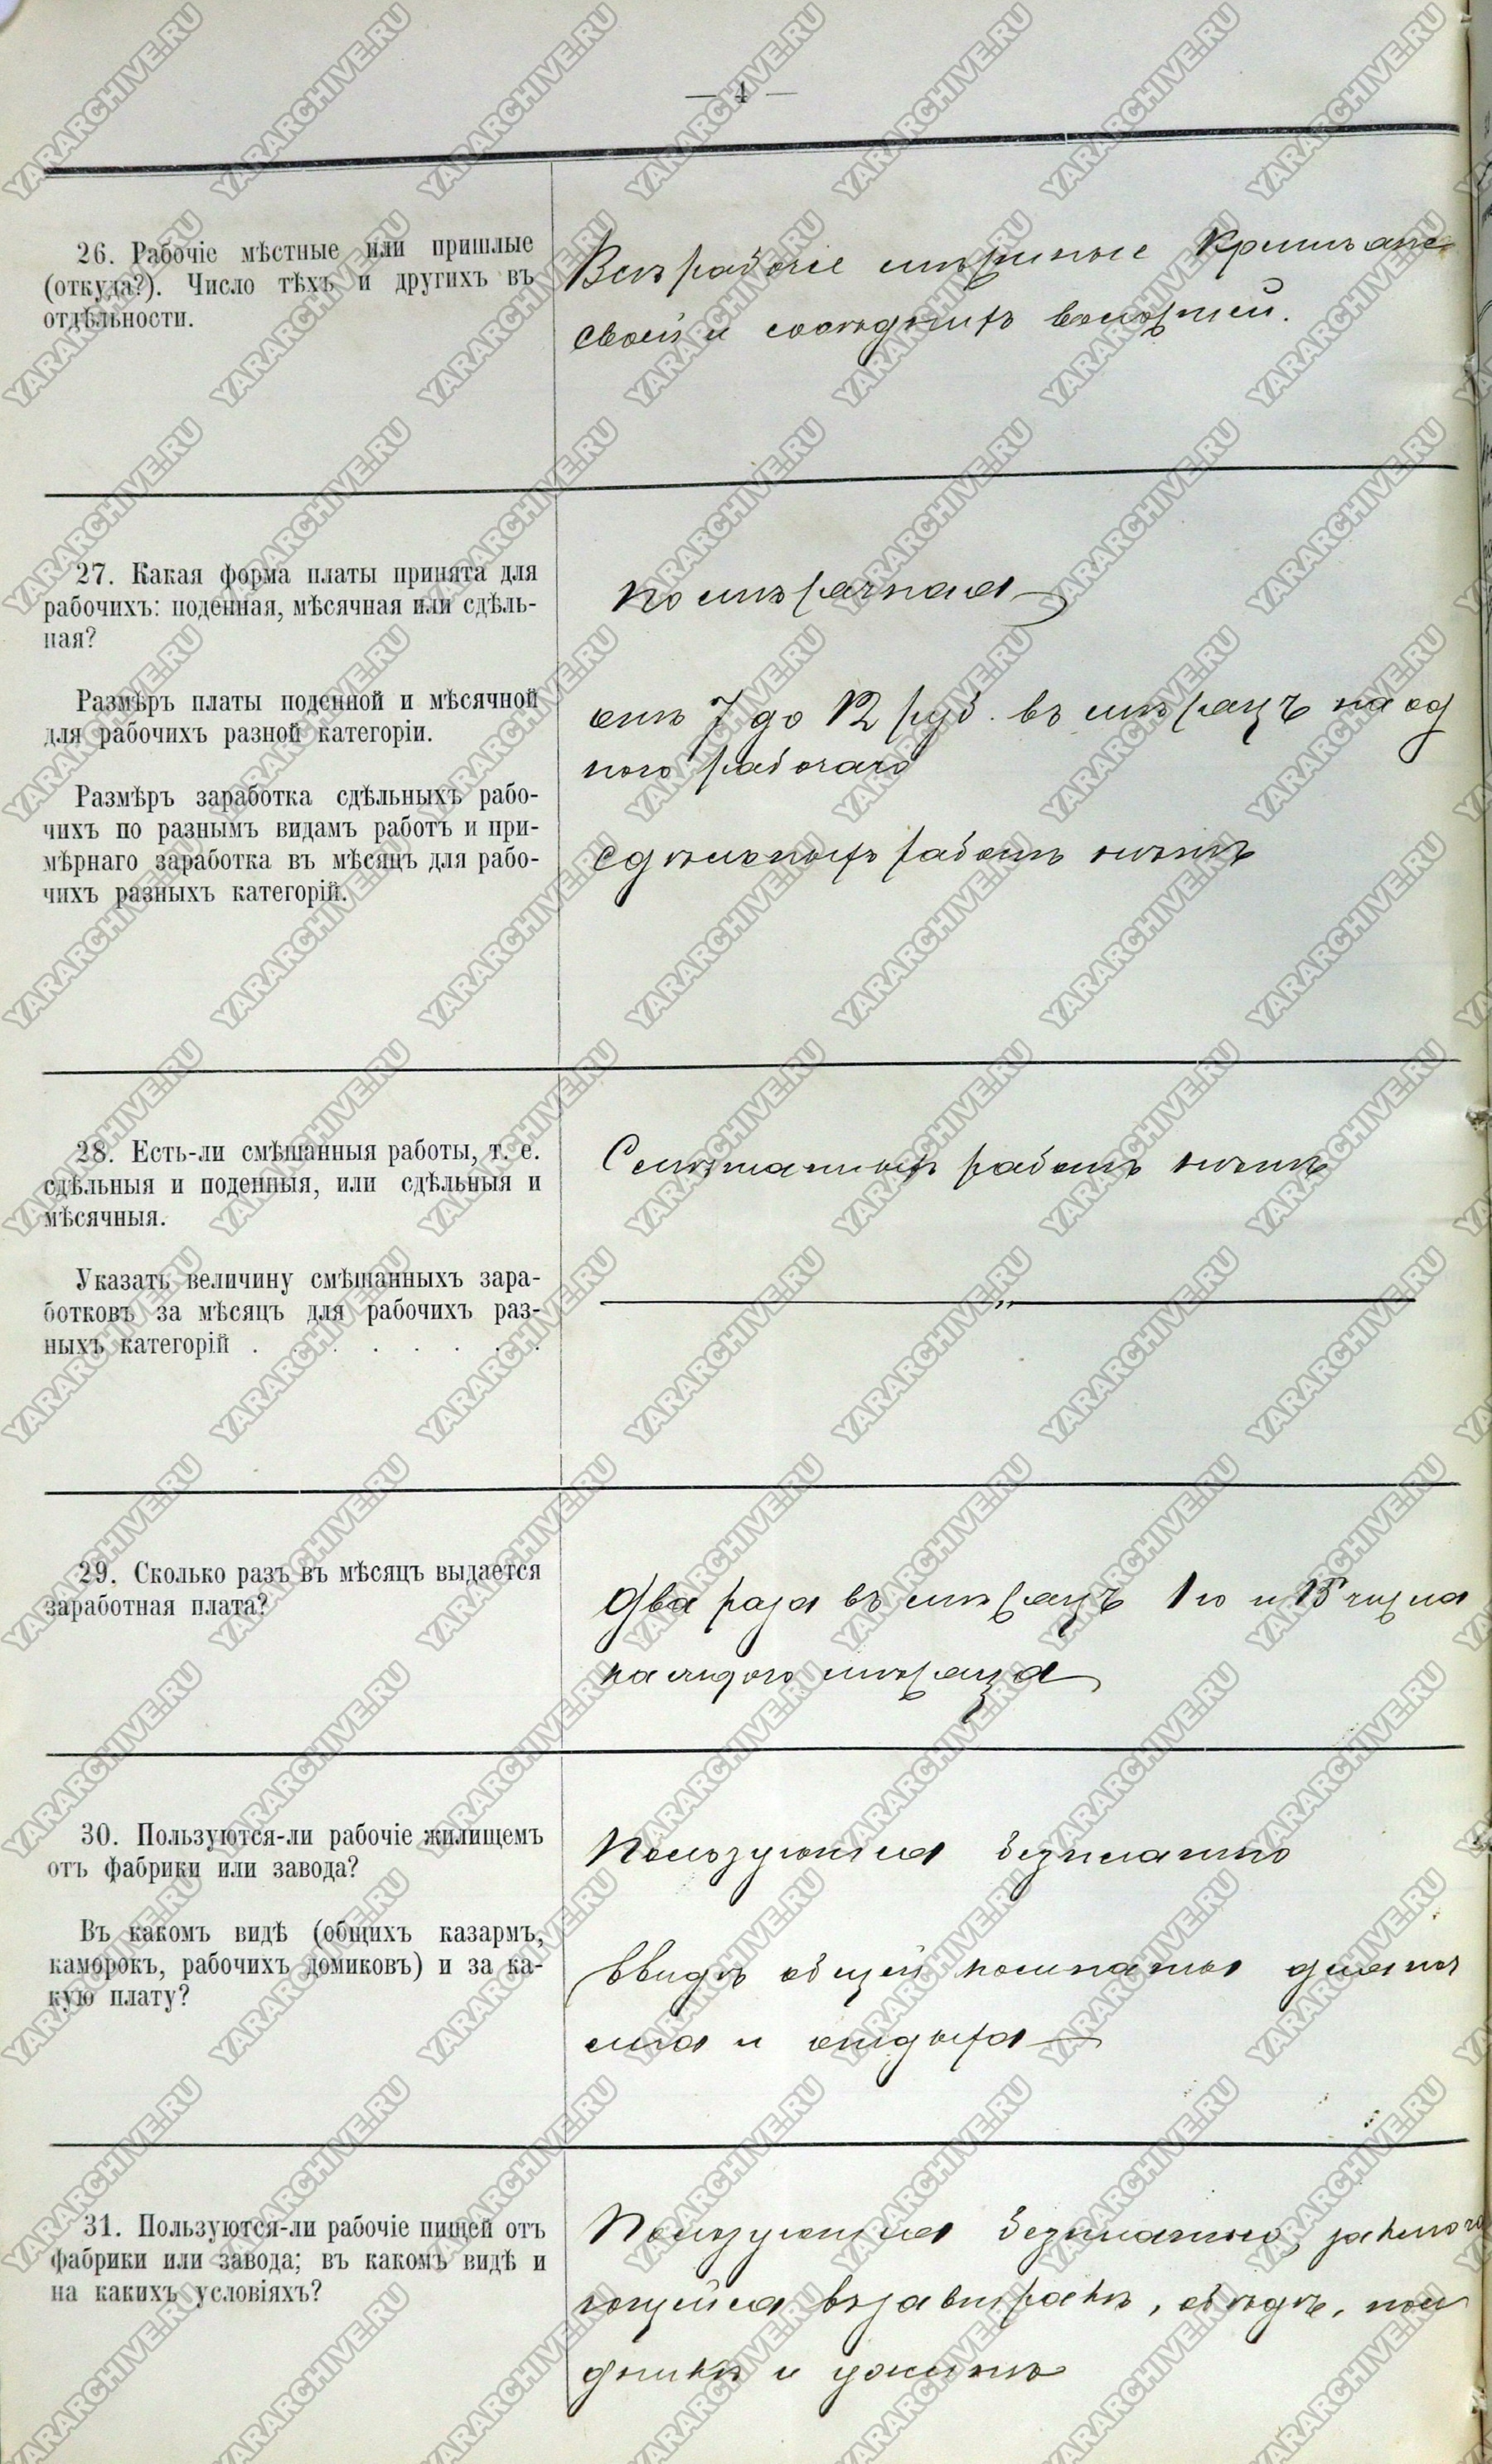 — 4 —
26. Рабочіе мѣстные или пришлые
(откуда?). Число тѣхъ и другихъ въ
отдѣльности.
Всѣ рабочіе мѣстные Крестьяне
своей и сосѣднихъ волостей.
27. Какая форма платы принята для
рабочихъ: поденная, мѣсячная или сдѣль-
ная?
Помѣсячная
Размѣръ платы поденной и мѣсячной
для рабочихъ разной категоріи.
отъ 7 до 12 руб. въ мѣсяцъ на од
ного рабочаго
Размѣръ заработка сдѣльныхъ рабо-
чихъ по разнымъ видамъ работъ и при-
мѣрнаго заработка въ мѣсяцъ для рабо-
чихъ разныхъ категорій.
Сдѣльныхъ работъ нѣтъ
28. Есть-ли смѣшанныя работы, т. е.
сдѣльныя и поденныя, или сдѣльныя и
мѣсячныя.
Смѣшанныхъ работъ нѣтъ
Указать величину смѣшанныхъ зара-
ботковъ за мѣсяцъ для рабочихъ раз-
ныхъ категорій . . . . . . . .
— „ —
29. Сколько разъ въ мѣсяцъ выдается
заработная плата?
Два раза въ мѣсяцъ 1го и 15 числа
каждого мѣсяца
30. Пользуются-ли рабочіе жилищемъ
отъ фабрики или завода?
Пользуются безплатно
Въ какомъ видѣ (общихъ казармъ,
каморокъ, рабочихъ домиковъ) и за ка-
кую плату?
Ввидѣ общей комнаты для ноч
лега и отдыха
31. Пользуются-ли рабочіе пищей отъ
фабрики или завода; въ какомъ видѣ и
на какихъ условіяхъ?
Пользуются безплатно, заключа
ющейся въ завтракѣ, обѣдѣ, пол
дникѣ и ужинѣ
YARARCHIVE.RU